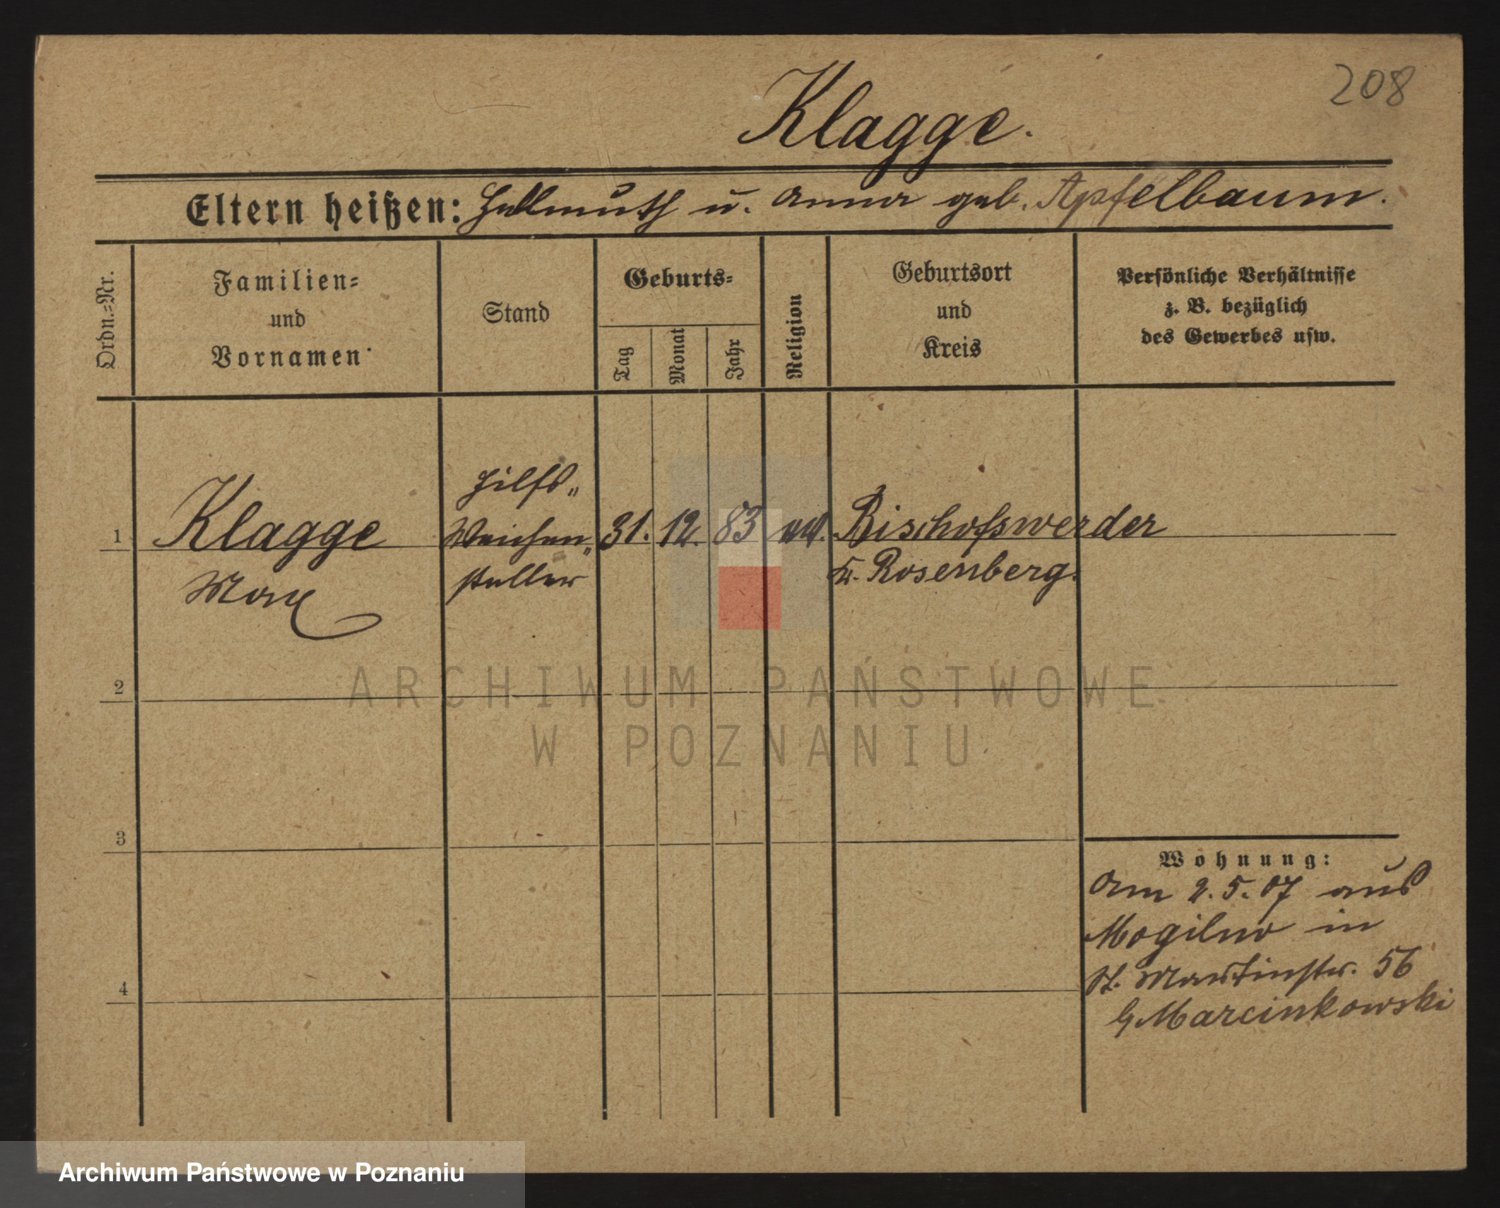 208
Klagge.
Eltern heißen: Hellmuth u. Anna geb. Apfelbaum.
Ordn.=Nr.
Familien=
und
Vornamen
Stand
Geburts=
Tag
Monat
Jahr
Religion
Geburtsort
und
Kreis
Persönliche Verhältnisse
z. B. bezüglich
des Gewerbes usw.
1 Klagge
Max
Hilfs„
Weichen„
steller
31. 12. 83 ev.
Bischofswerder
Kr. Rosenberg.
2
3
4
Wohnung:
Am 2.5.07 aus
Mogilno in
St. Martinstr. 56
b/Marcinkowski
ARCHIWUM PAŃSTWOWE
W POZNANIU
Archiwum Państwowe w Poznaniu